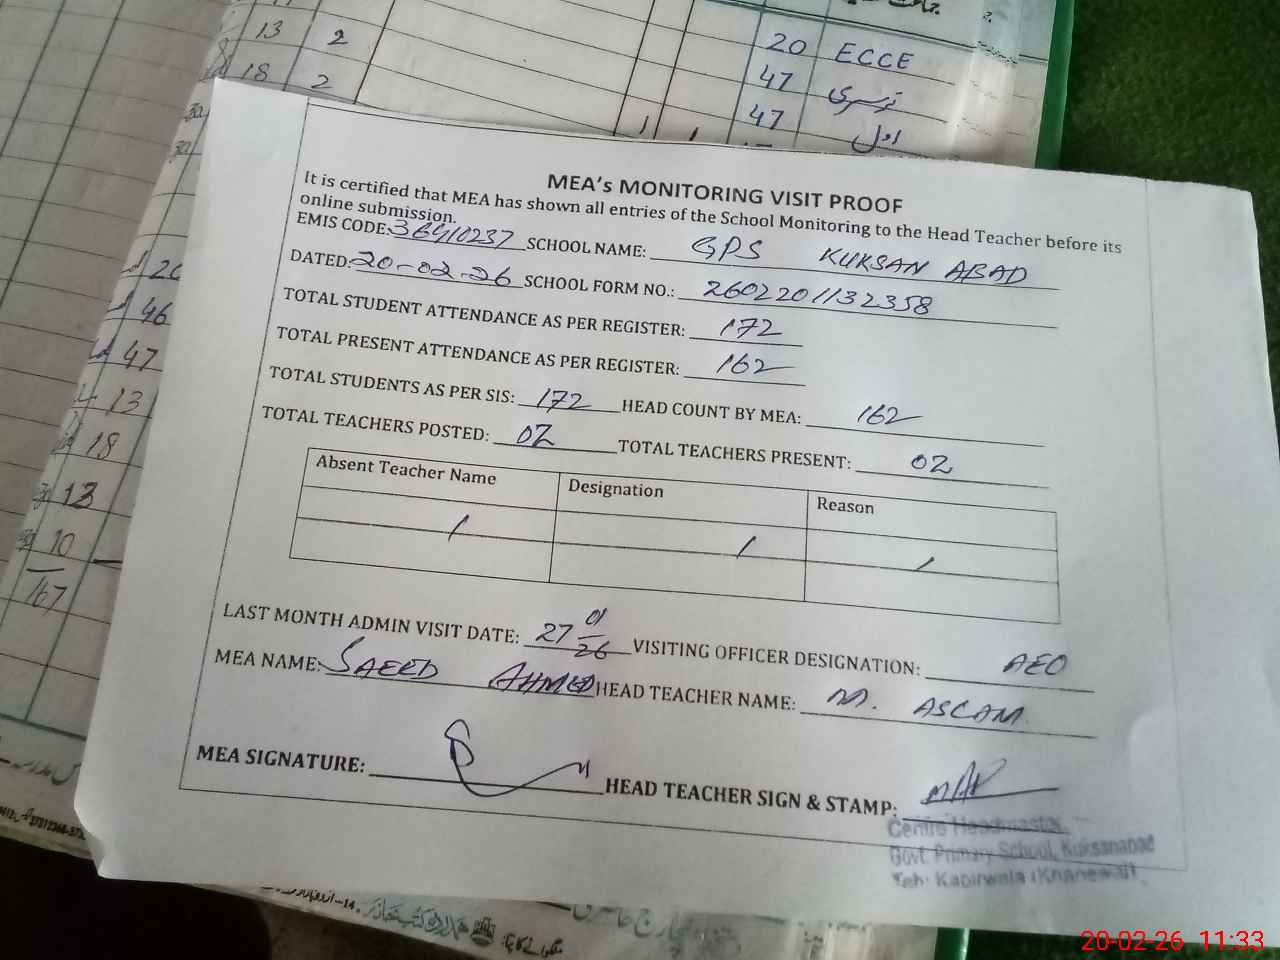 13 2
18 2
20 ECCE
47 نرسری
47 اول
MEA's MONITORING VISIT PROOF
It is certified that MEA has shown all entries of the School Monitoring to the Head Teacher before its
online submission.
EMIS CODE: 36410237 SCHOOL NAME: GPS KUKSAN ABAD
DATED: 20-02-26 SCHOOL FORM NO.: 2602201132358
TOTAL STUDENT ATTENDANCE AS PER REGISTER: 172
TOTAL PRESENT ATTENDANCE AS PER REGISTER: 162
TOTAL STUDENTS AS PER SIS: 172 HEAD COUNT BY MEA: 162
TOTAL TEACHERS POSTED: 02 TOTAL TEACHERS PRESENT: 02
Absent Teacher Name Designation Reason
/ / /
LAST MONTH ADMIN VISIT DATE: 27 01 26 VISITING OFFICER DESIGNATION: AEO
MEA NAME: SAEED AHMED HEAD TEACHER NAME: M. ASLAM
MEA SIGNATURE: HEAD TEACHER SIGN & STAMP:
Centre Headmaster
Govt. Primary School, Kuksanabad
Teh: Kabirwala (Khanewal)
46
47
13
18
13
10
167
20-02-26 11:33